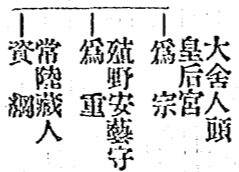 大舍人頭
皇后宮
爲宗
殖野安藝守
爲重
常陸藏人
資綱